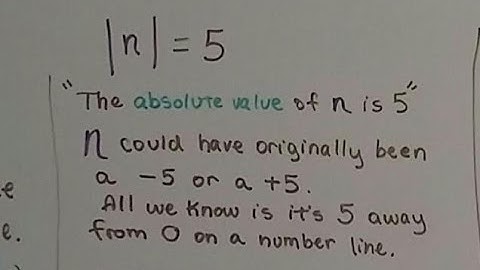 |n| = 5
"The absolute value of n is 5"
n could have originally been
a -5 or a +5.
All we know is it's 5 away
from 0 on a number line.
e
e.